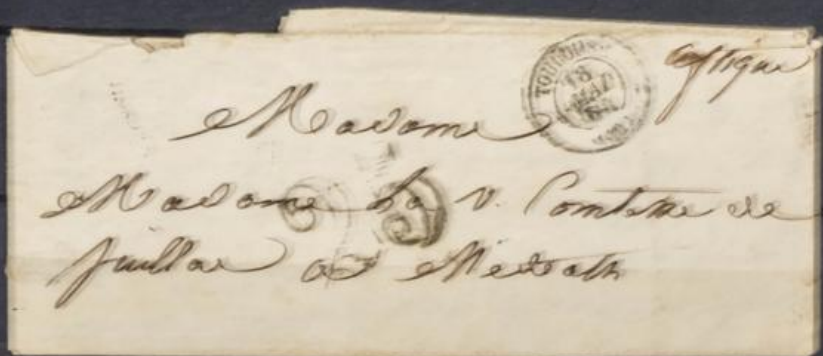 TOUGGOURT
18
MAI
Madame
Madame La V. Comtesse de
Juillac à Médéah